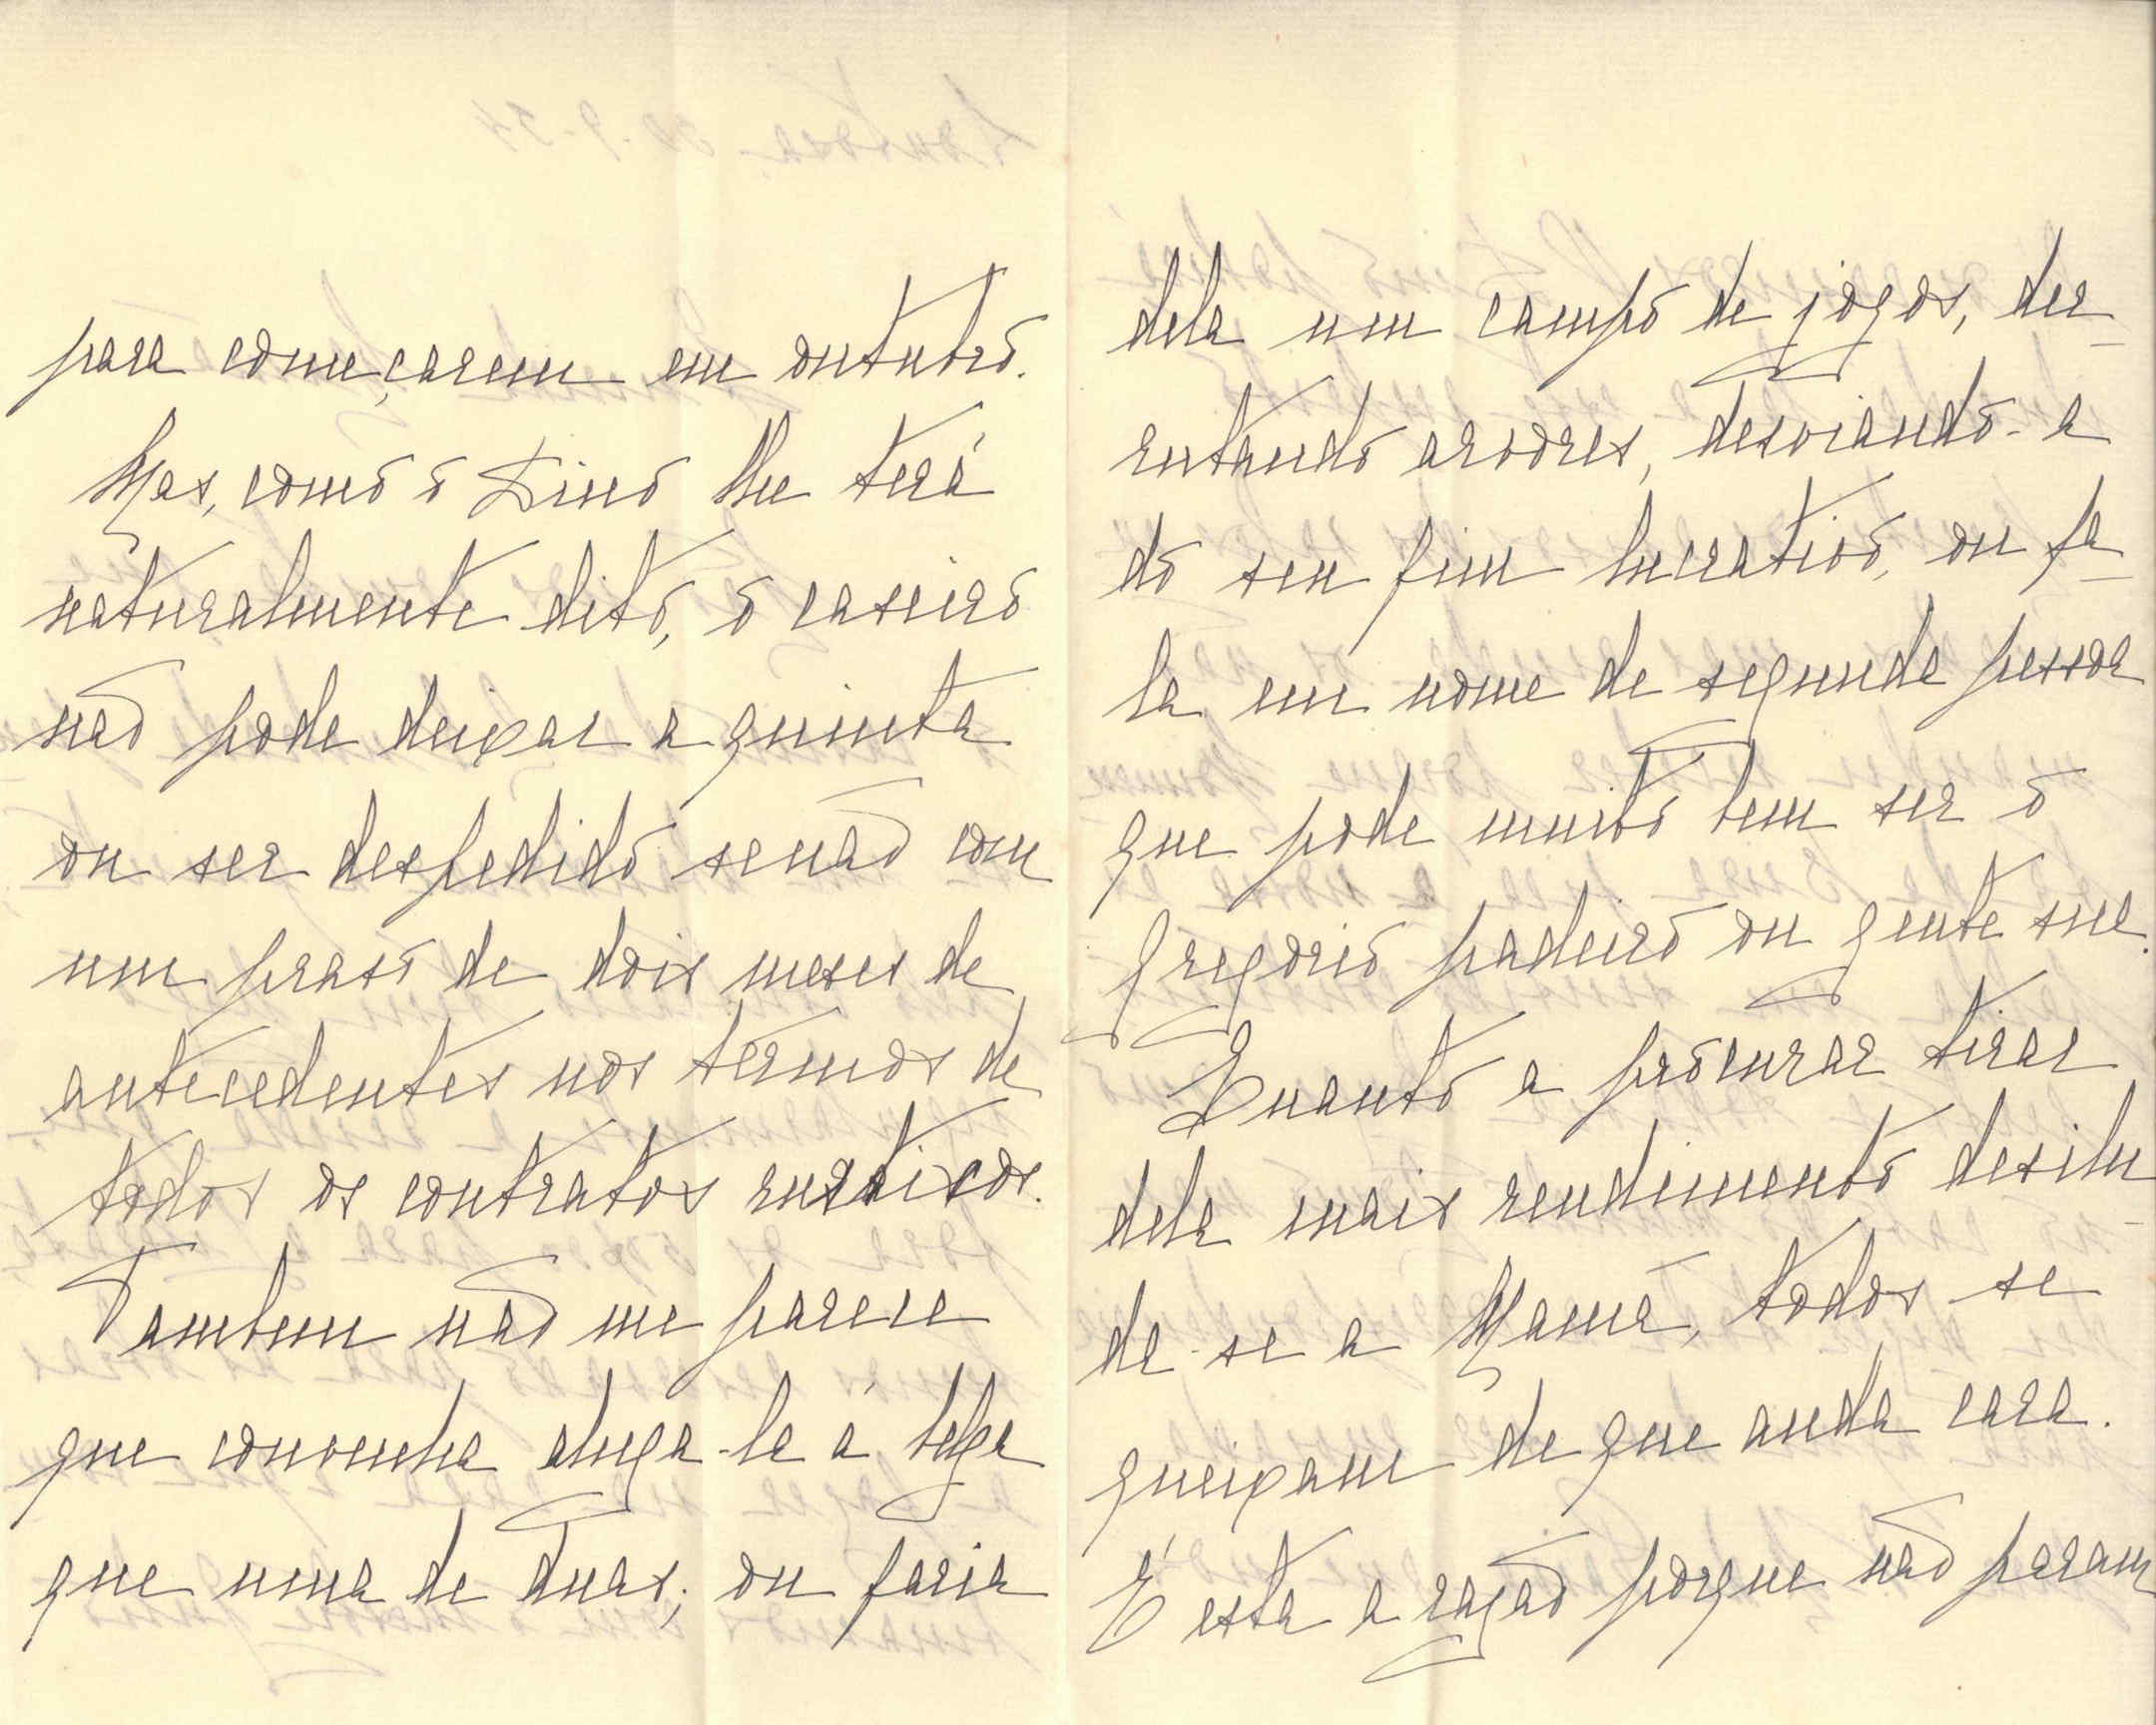 para começarem em outubro.
Mas, como o Dino lhe terá
naturalmente dito, o caseiro
não pode deixar a quinta
ou ser despedido senão com
um praso de dois meses de
antecedentes nos termos de
todos os contratos rusticos.
Tambem não me parece
que convenha aluga-la á
que uma de duas; ou faria
dela um campo de jogos, der-
rutando arvores, desviando-a
do seu fim lucrativo, ou fa-
la em nome de segunda pessoa
que pode muito bem ser o
Gregorio padeiro ou gente sua.
Quanto a procurar tirar
dela mais rendimento desilu-
da-se a Mamã, todos se
queixam de que anda cara.
É esta a razão porque não param